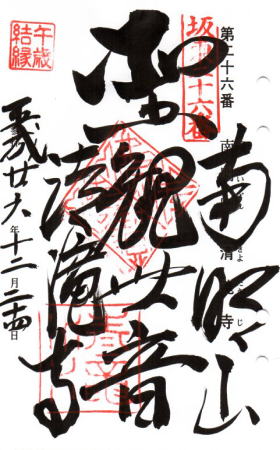 第二十六番
南明山 清瀧寺
坂東二十六番
南明山
観世音
清滝寺
午歳結縁
平成廿六年十二月二十四日